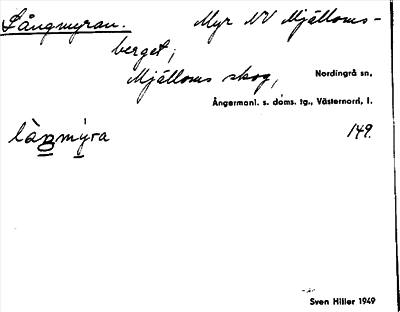 Långmyran. Myr NV Mjälloms-
berget;
Mjälloms skog, Nordingrå sn,
Ångermanl. s. doms. tg., Västernorrl. l.
làŋmýra 149.
Sven Hiller 1949